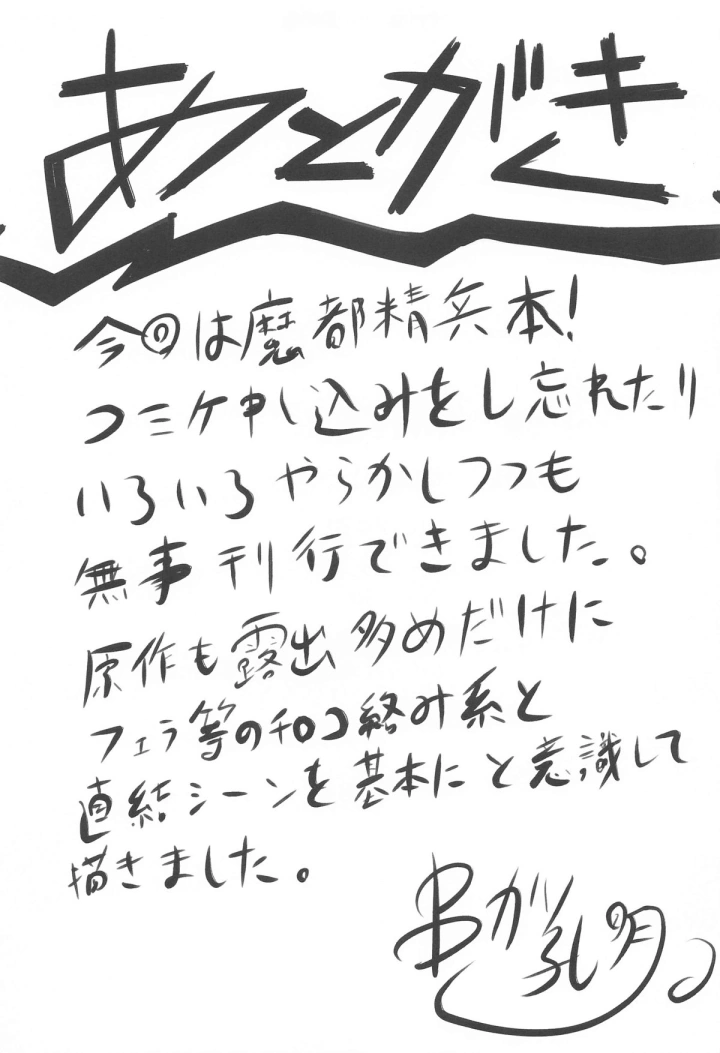 あとがき
今回は魔都精兵本!
コミケ申し込みをし忘れたり
いろいろやらかしつつも
無事刊行できました。
原作も露出多めだけに
フェラ等のチ○コ絡み系と
直結シーンを基本にと意識して
描きました。
串が孔明。